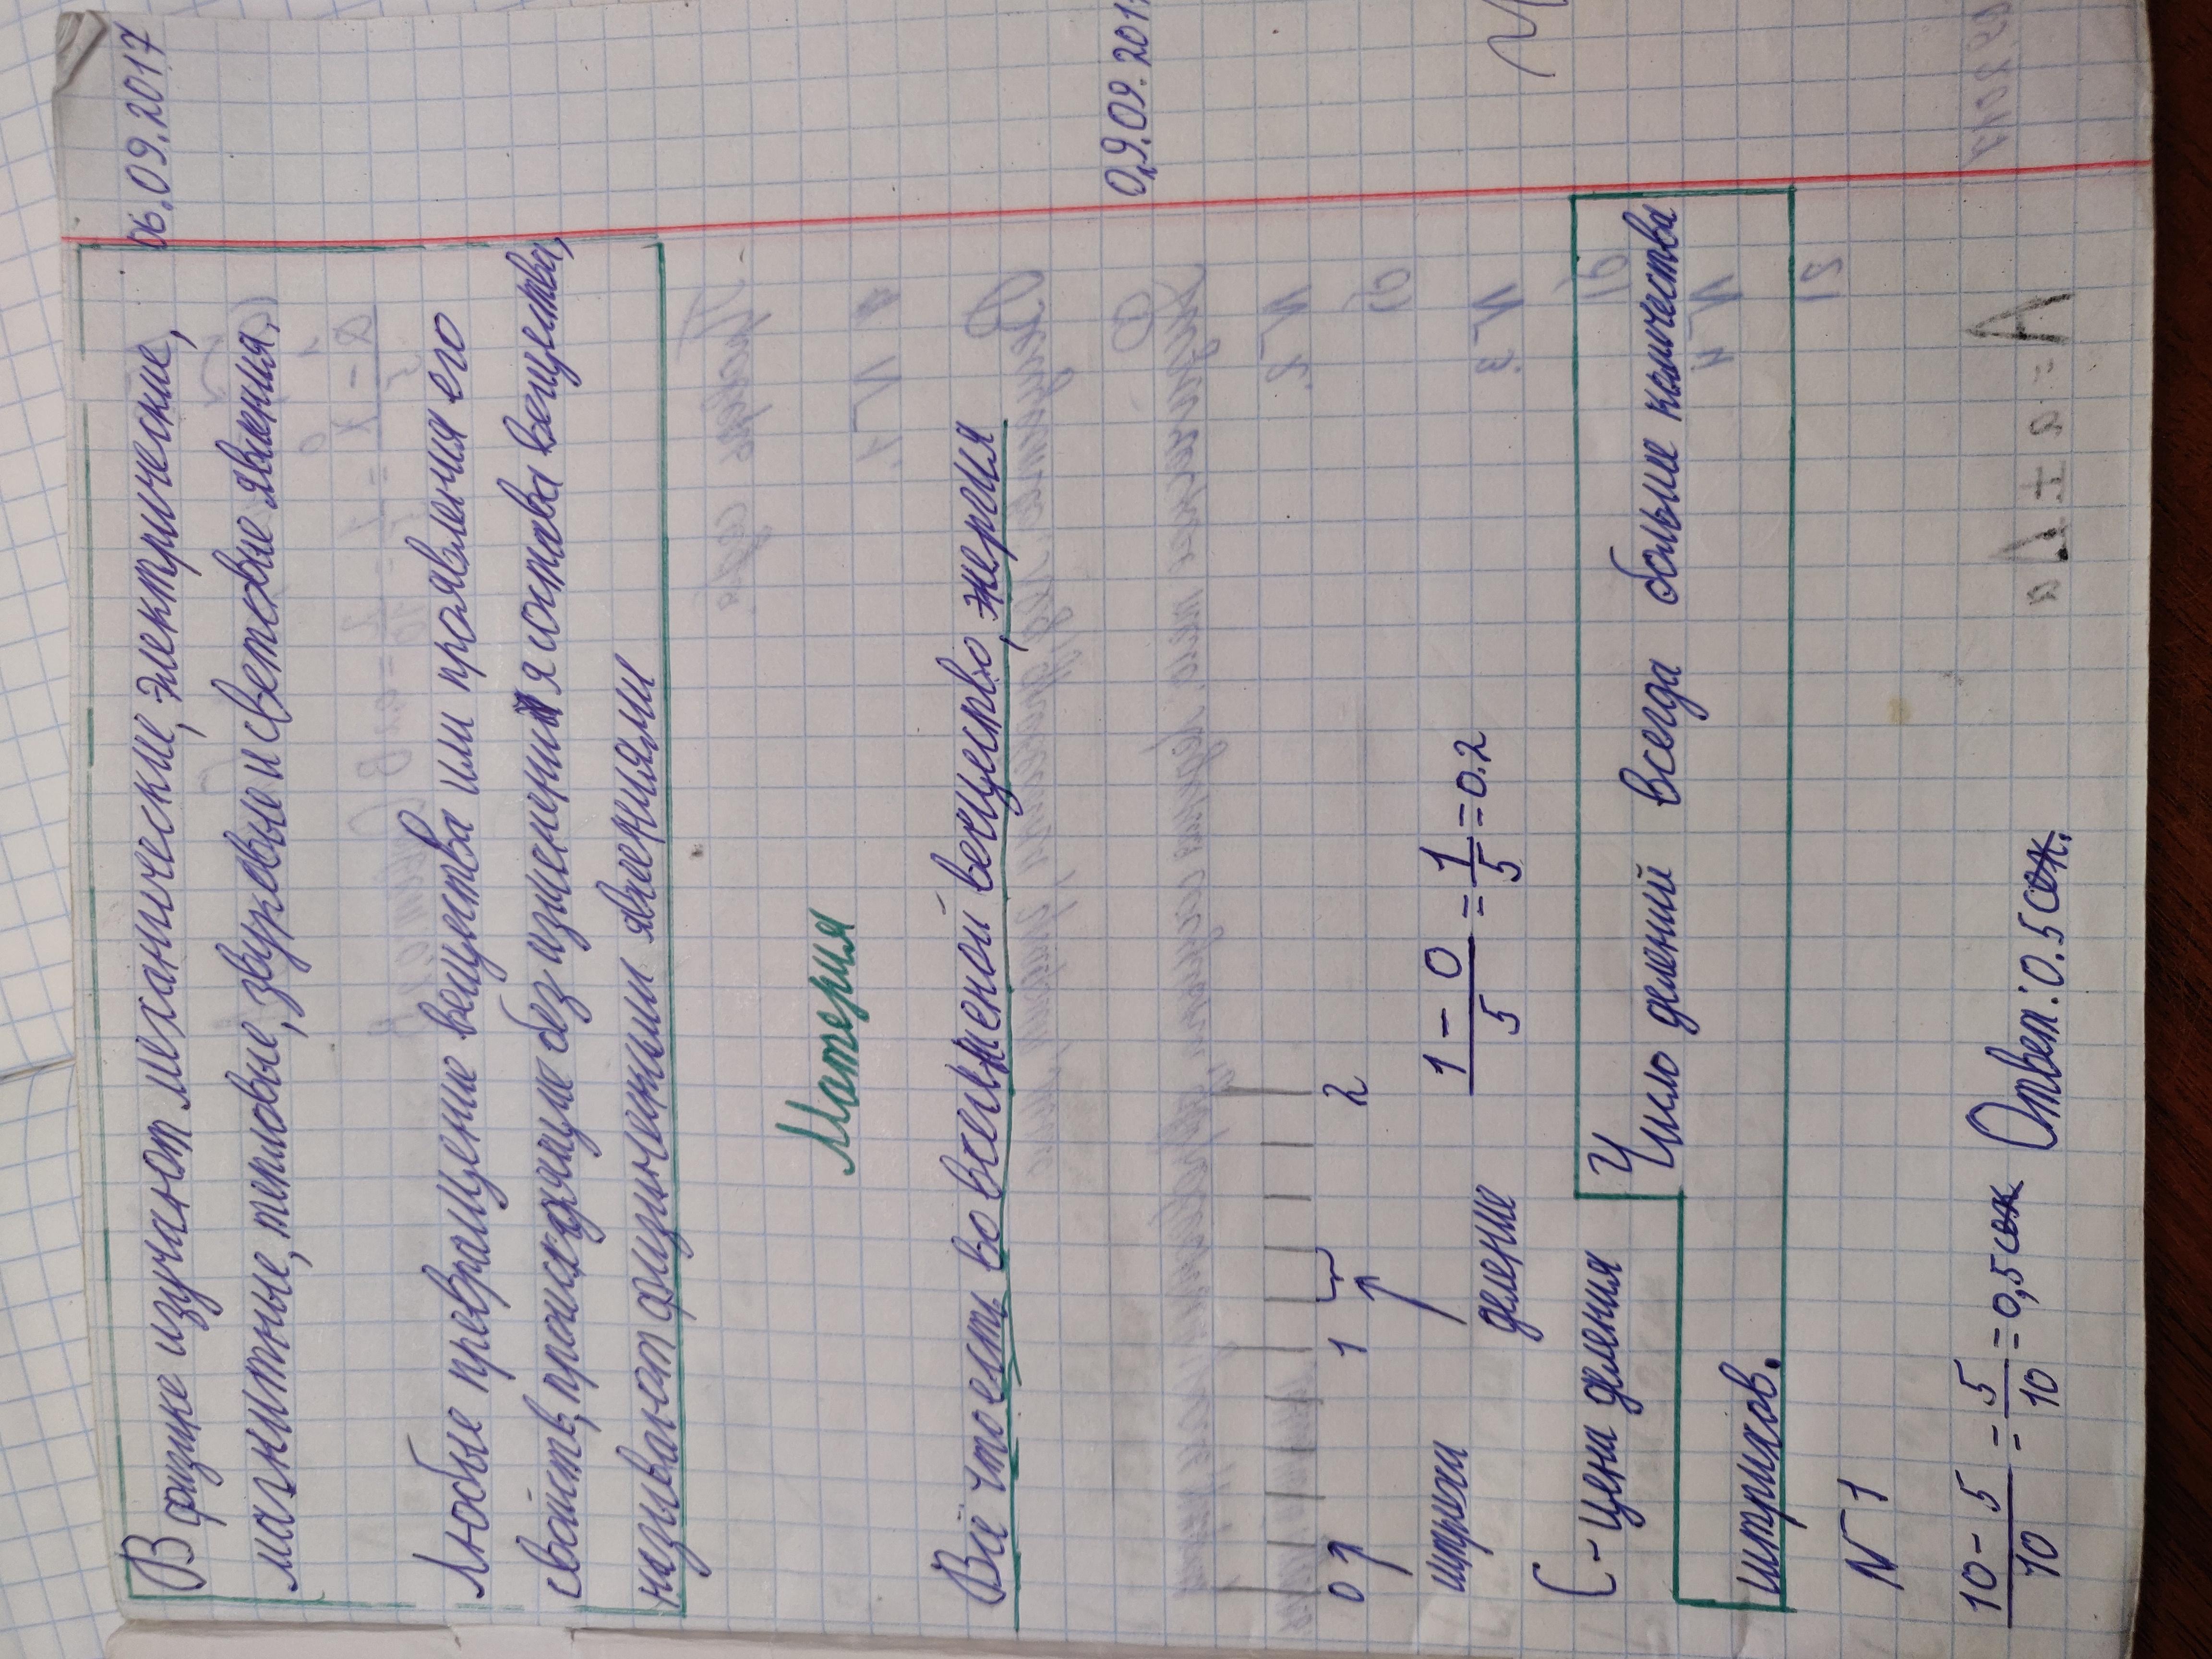 06.09.2017
В физике изучают механические, электрические,
магнитные, тепловые, звуковые и световые явления.
Любые превращение вещества или проявления его
свойств, происходящие без изменения состава вещества,
называют физическими явлениями
Материя
Всё что есть во вселенной вещество, энергия
09.09.201
0 1 2
штрихи деление
1 - 0 / 5 = 1/5 = 0.2
C - цена деления
Число делений всегда больше количества
штрихов.
N 1
10 - 5 / 10 = 5/10 = 0,5 Ответ: 0.5